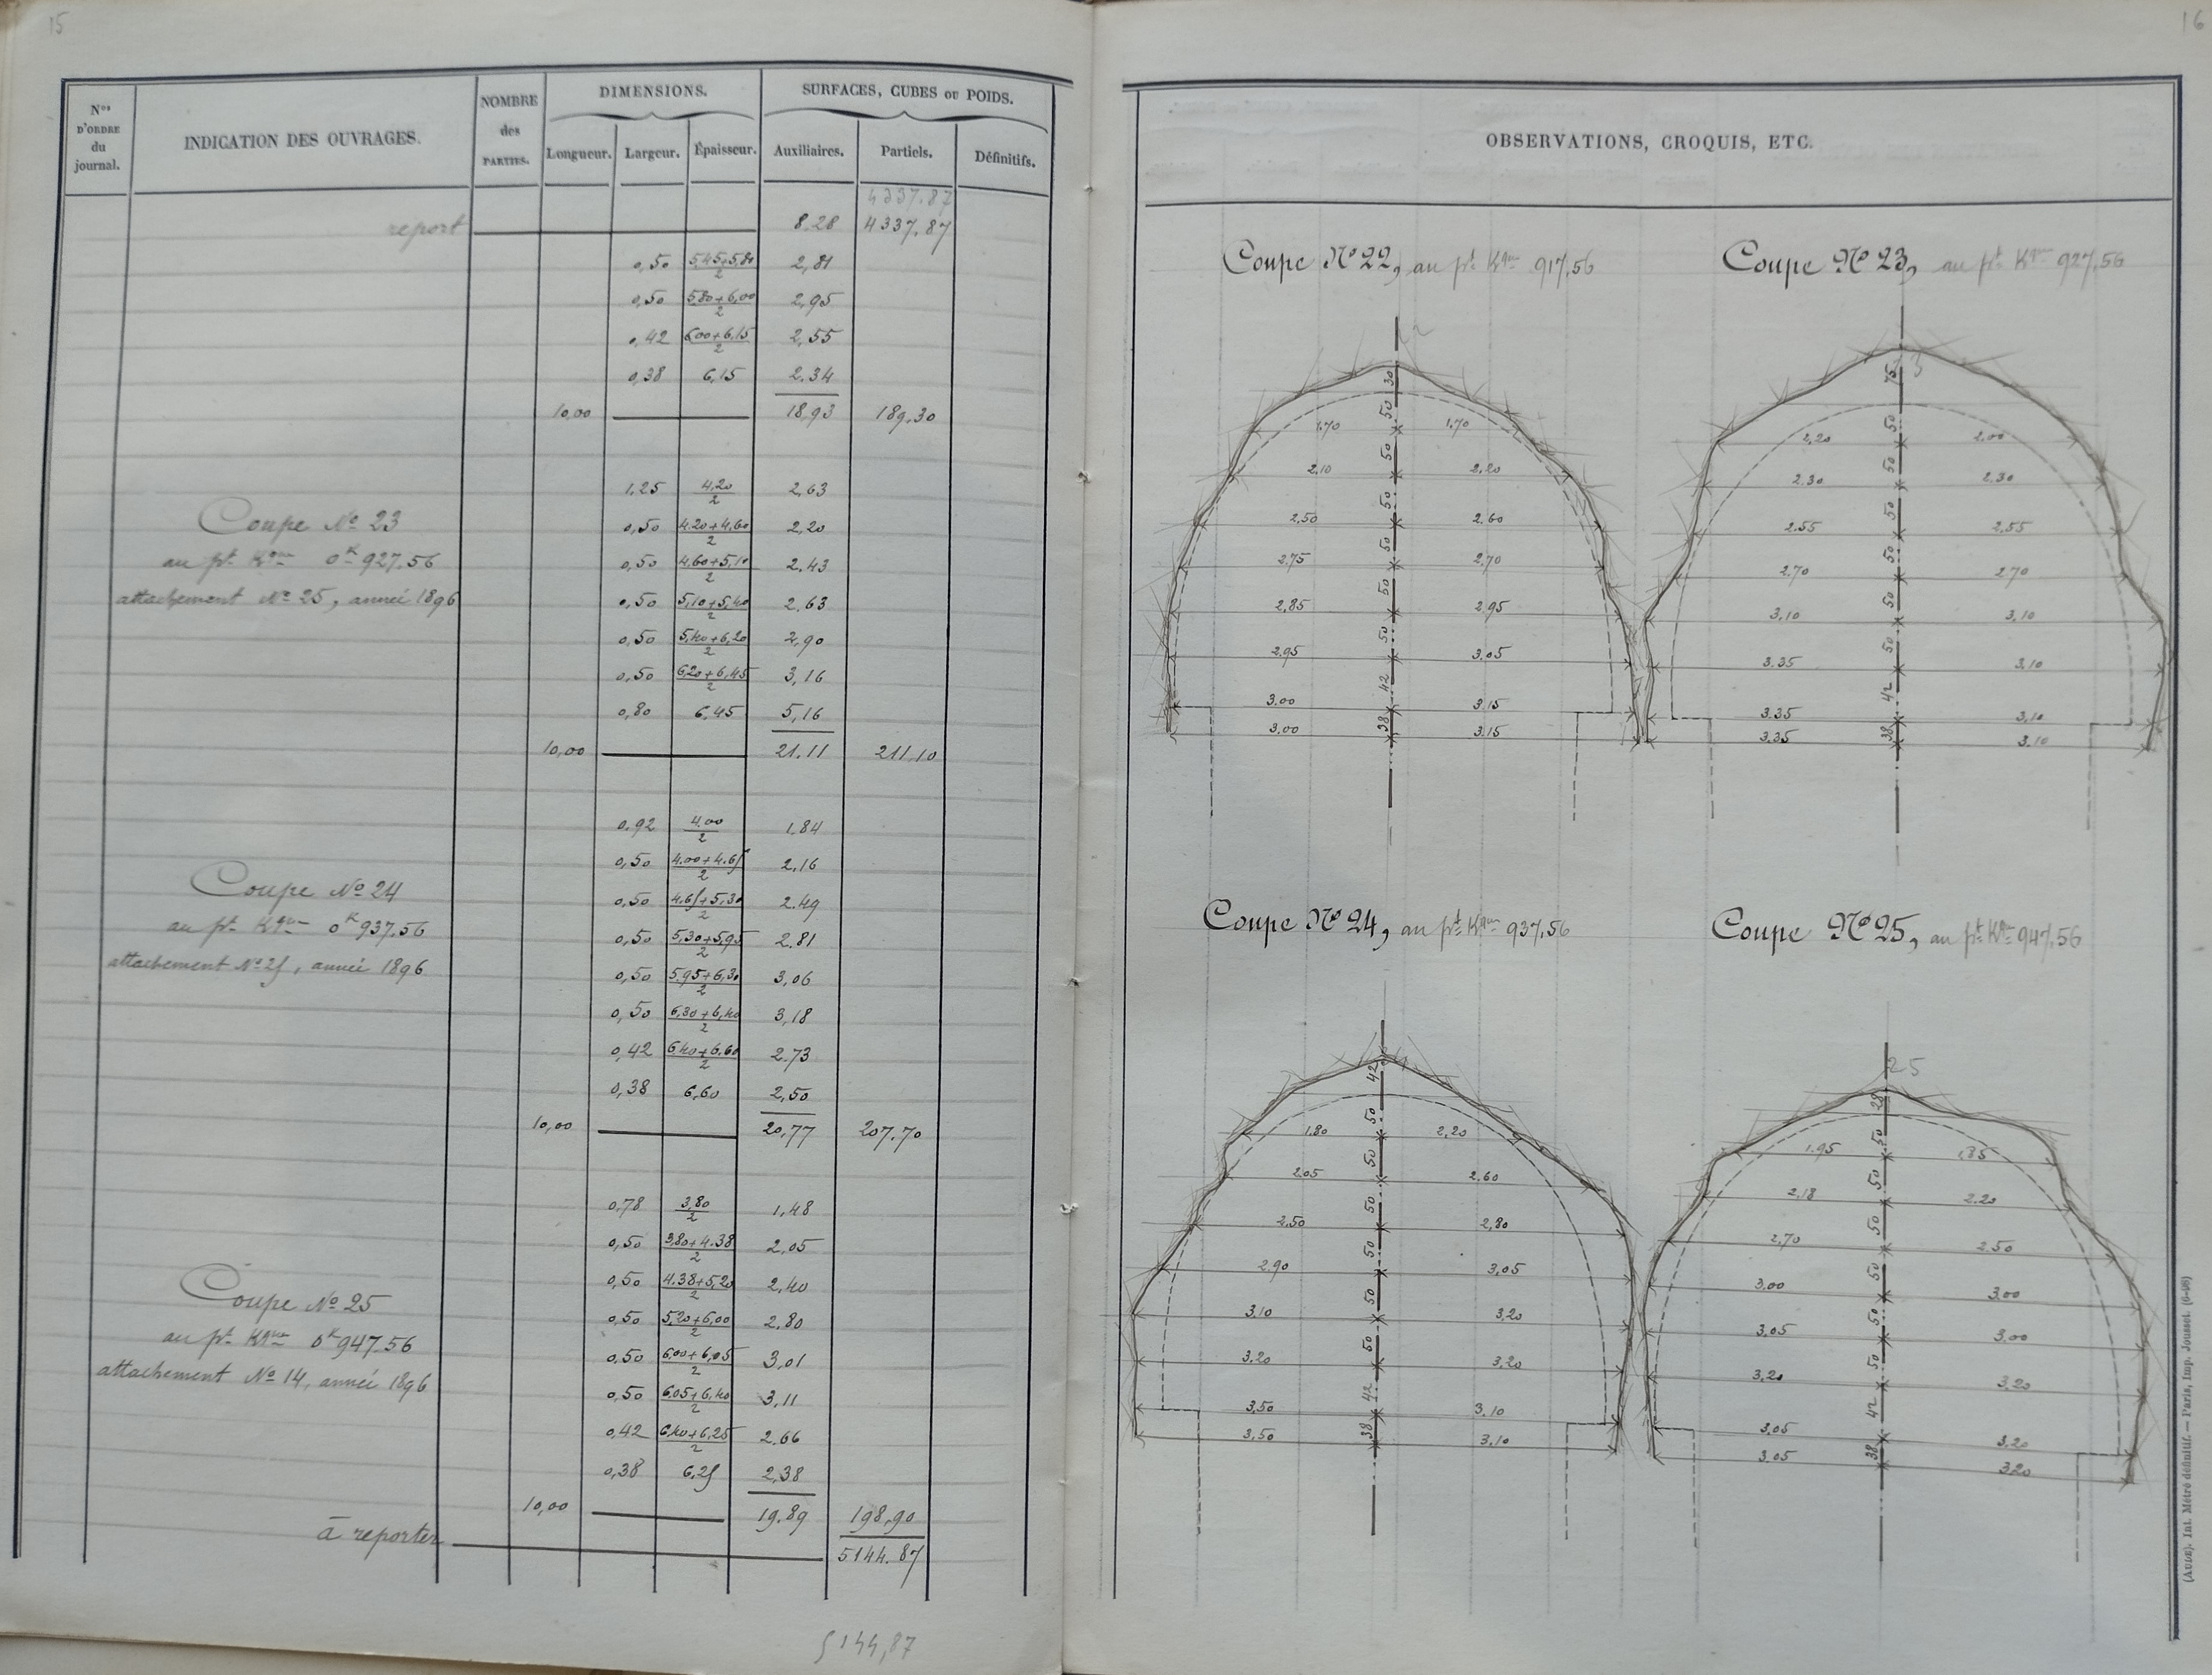 15
Nos D'ORDRE du journal.
INDICATION DES OUVRAGES.
NOMBRE des PARTIES.
DIMENSIONS.
Longueur. Largeur. Épaisseur.
SURFACES, CUBES OU POIDS.
Auxiliaires. Partiels. Définitifs.
4337.87
report 8.28 4337.87
0,50 5,45+5,80/2 2,81
0,50 5,80+6,00/2 2,95
0,42 6,00+6,15/2 2,55
0,38 6,15 2.34
10,00 18,93 189.30
1,25 4,20/2 2,63
Coupe No 23
0,50 4.20+4,60/2 2,20
au pt Kque 0K 927,56
0,50 4,60+5,10/2 2.43
attachement No 25, année 1896
0,50 5,10+5,40/2 2.63
0,50 5,40+6,20/2 2,90
0,50 6,20+6,45/2 3,16
0,80 6,45 5,16
10,00 21.11 211.10
0,92 4.00/2 1,84
0,50 4.00+4.65/2 2,16
Coupe No 24
0,50 4.65+5,30/2 2.49
au pt Kque 0K 937.56
0,50 5,30+5,95/2 2.81
attachement No 25, année 1896
0,50 5,95+6,30/2 3,06
0,50 6,30+6,40/2 3,18
0,42 6,40+6,60/2 2.73
0,38 6,60 2,50
10,00 20,77 207.70
0,78 3,80/2 1,48
0,50 3,80+4.38/2 2.05
0,50 4.38+5,20/2 2,40
Coupe No 25
0,50 5,20+6,00/2 2.80
au pt Kque 0K 947.56
0,50 6,00+6,05/2 3,01
attachement No 14, année 1896
0,50 6,05+6,40/2 3,11
0,42 6,40+6,25/2 2.66
0,38 6,25 2,38
10,00 19.89 198,90
à reporter 5144.87
5144,87
16
OBSERVATIONS, CROQUIS, ETC.
Coupe No 22, au pt Kque 917,56
30
50
1.70 1.70
50
2,10 2,20
50
2,50 2,60
50
2.75 2.70
50
2,85 2,95
50
2.95 3.05
42
3.00 3.15
38
3.00 3.15
Coupe No 23, au pt Kque 927,56
75
50
2,20 2.00
50
2.30 2.30
50
2.55 2,55
50
2.70 2.70
50
3,10 3,10
50
3.35 3,10
42
3.35 3,10
38
3.35 3.10
Coupe No 24, au pt Kque 937,56
42
50
1.80 2,20
50
2.05 2.60
50
2.50 2,80
50
2.90 3,05
50
3.10 3,20
50
3,20 3,20
42
3,50 3.10
38
3,50 3,10
Coupe No 25, au pt Kque 947,56
25
28
50
1.95 1,85
50
2,18 2.20
50
2,70 2.50
50
3,00 3.00
50
3,05 3,00
50
3,20 3,20
42
3,05 3,20
38
3.05 3.20
(AULE). Inf. Métré définitif. — Paris, Imp. Jousset. (6-98)